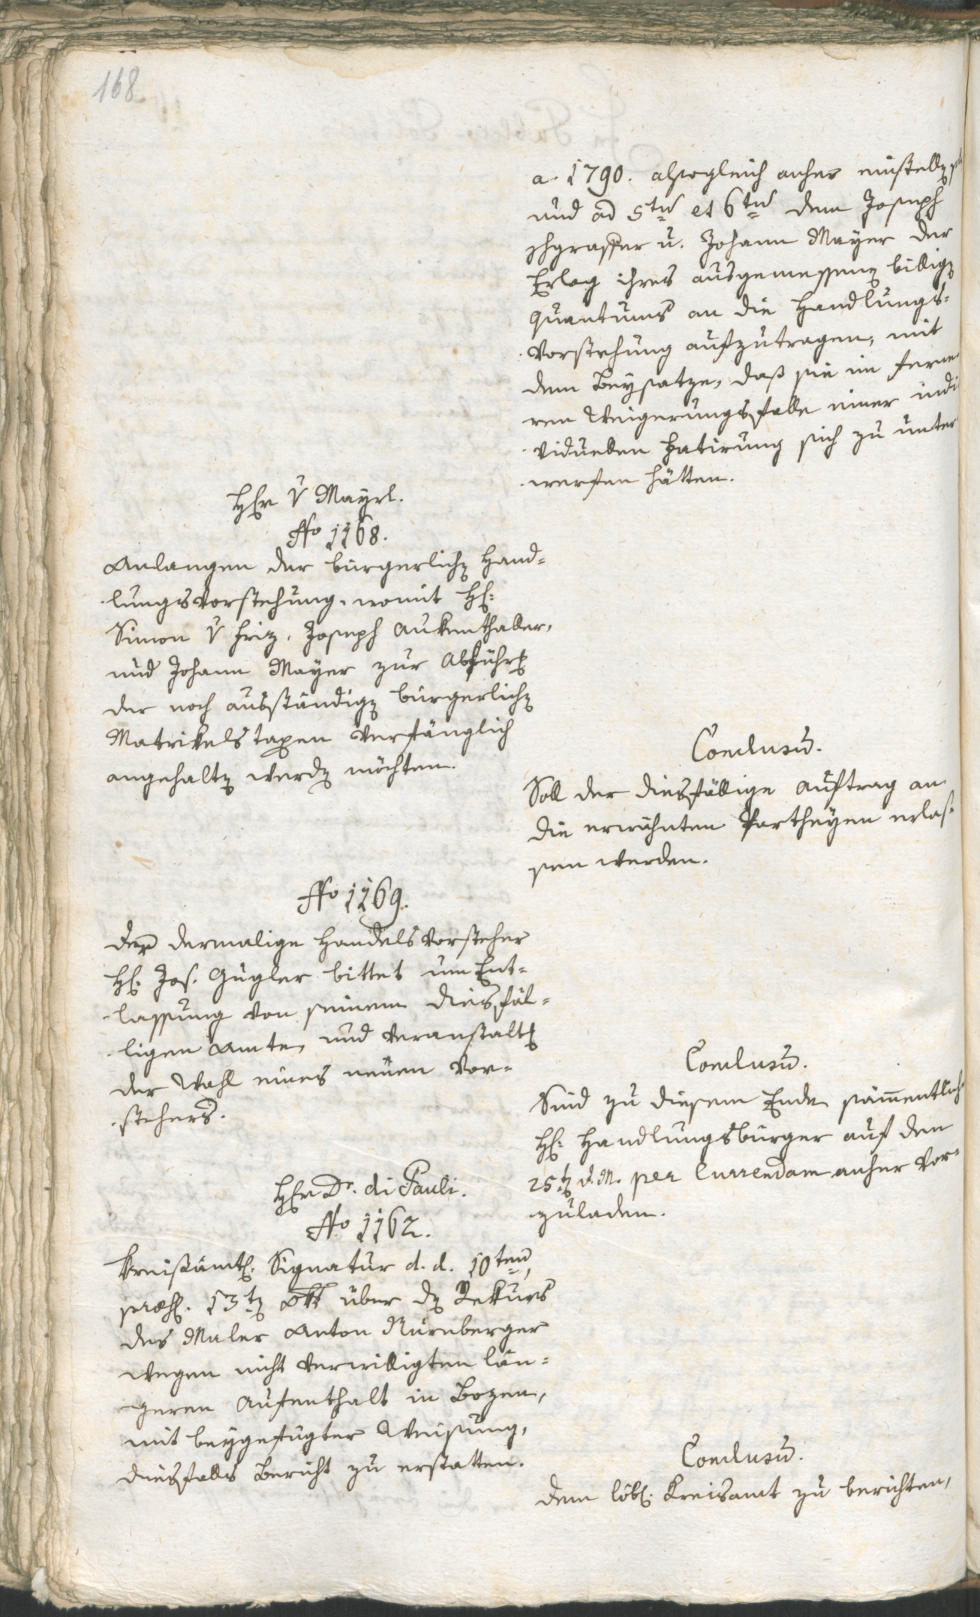 168
a. 1790. alsogleich anher einstelle,
und ad 5tū et 6tū dem Joseph
schgraffer u. Johann Mayer der
Erlag ihres ausgemessenen billigen
Quantums an die Handlungs-
vorstehung aufzutragen, mit
dem Beysatze, daß sie im ferne
ren Weigerungsfalle einer indi
viduellen Fatirung sich zu unter
werfen hätten.
Herr v Mayrl.
No 1168.
Anlangen der bürgerlichen Hand-
lungsvorstehung, womit H:
Simon v Friz, Joseph Aukenthaller,
und Johann Mayer zur Abführung
der noch ausständigen bürgerlichen
Matrikelstaxen verfänglich
angehalten werden möchten.
Conclusū.
Soll der diesfällige Auftrag an
die erwähnten Partheyen erlas-
sen werden.
No 1169.
Der dermalige Handelsvorsteher
H: Jos. Gugler bittet um Ent-
lassung von seinem diesfäl-
ligen Amte, und Veranstaltung
der Wahl eines neuen Vor-
stehers.
Conclusū.
Sind zu diesem Ende sämmentliche
H: Handlungsbürger auf den
25ten d. M. per Currendam anher vor-
zuladen.
Herr Dr. di Pauli.
No 1162.
Kreisämtl. Signatur d. d. 10ten,
præs. 13ten Okt über den Rekurs
des Maler Anton Nürnberger
wegen nicht verwilligten län-
geren Aufenthalt in Bozen,
mit beygefügter Weisung,
diesfalls Bericht zu erstatten.
Conclusū.
Dem löbl. Kreisamt zu berichten,